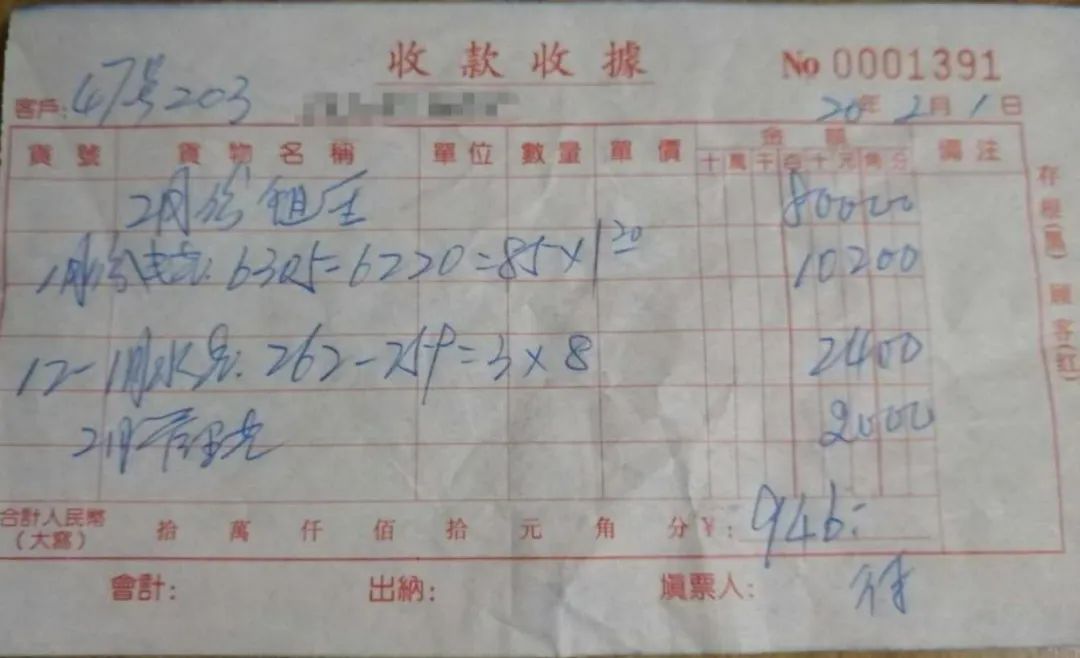 收款收據
No 0001391
客戶: 47号203
20年2月1日
貨號 貨物名稱 單位 數量 單價 金額 備注
十萬千百十元角分
2月份租金 80000
1月份电费: 6305-6220=85×1.20 10200
12-1月水费: 262-259=3×8 2400
2月管理费 2000
合計人民幣(大寫) 拾 萬 仟 佰 拾 元 角 分 ¥: 946:
會計: 出納: 填票人: 徐
存根(黑) 顧客(紅)